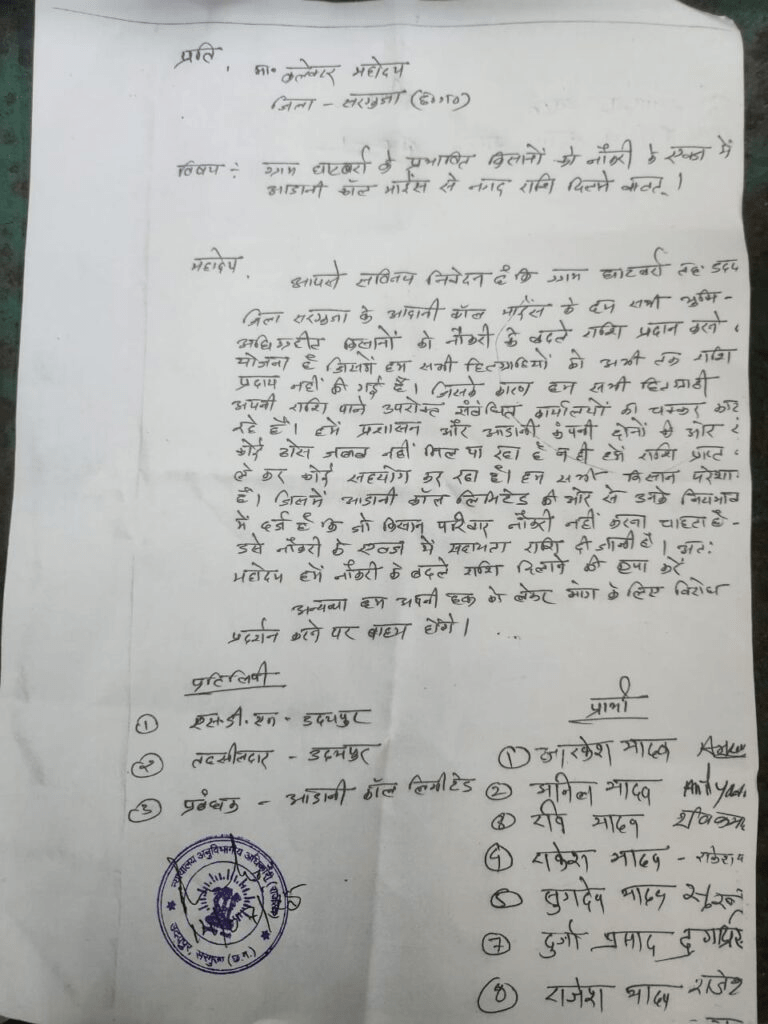 प्रति,
मा० कलेक्टर महोदय
जिला - सरगुजा (छ०ग०)
विषय :- ग्राम घाटबर्रा के प्रभावित किसानों को नौकरी के एवज में
आडानी कॉल माइंस से नगद राशि दिलाने बाबत् ।
महोदय,
आपसे सविनय निवेदन है कि ग्राम घाटबर्रा तह. उदय
जिला सरगुजा के आदानी कॉल माइंस के हम सभी भूमि-
अधिग्रहीत किसानों को नौकरी के बदले राशि प्रदान करने
योजना है जिसमें हम सभी हितग्राहियों को अभी तक राशि
प्रदाय नहीं की गई है। जिसके कारण हम सभी हितग्राही
अपनी राशि पाने उपरोक्त संबंधित कार्यालयों का चक्कर काट
रहे हैं। हमें प्रशासन और आडानी कंपनी दोनों की ओर
कोई ठोस जवाब नहीं मिल पा रहा है न ही हमें राशि प्राप्त
ले कर कोई सहयोग कर रहा है। हम सभी किसान परेशा
है। जिसमें आडानी कॉल लिमिटेड की ओर से उनके
में दर्ज है कि जो किसान परिवार नौकरी नहीं करना चाहता है-
उसे नौकरी के एवज में सहायता राशि दी जाती है। अतः
महोदय हमें नौकरी के बदले राशि दिलाने की कृपा करें
अन्यथा हम अपनी हक को लेकर मांग के लिए विरोध
प्रदर्शन करने पर बाध्य होंगे। ...
प्रतिलिपी
① एस.डी.एम - उदयपुर
② तहसीलदार - उदयपुर
③ प्रबंधक - आडानी कॉल लिमिटेड
प्रार्थी
① आरकेश यादव
② अनिल यादव Anil yada
③ रवि यादव
④ राकेश यादव - राकेश य
⑥ सुगदेव यादव
⑦ दुर्गा प्रसाद
⑧ राजेश यादव राजेश
न्यायालय अनुविभागीय अधिकारी (राजस्व)
उदयपुर, सरगुजा (छ.ग.)